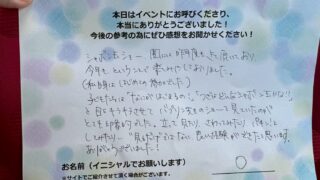 本日はイベントにお呼びくださり、
本当にありがとうございました!
今後の参考の為にぜひ感想をお聞かせください!
シャボン玉ショー 園には昨年度も 頂いており
今年も ということで 楽しみにしておりました。
(私自身ははじめての
子どもたちは "なにがはじまるの?"
と目をキラキラさせて バブリン 先生のショーを見ていたのが
とても印象的でした。立って見たり、さわってみたり
してみたり… 見るだけではない、良い経験ができたと思います。
ありがとうございました!
お名前(イニシャルでお願いします)
※サイトでご紹介させて頂く場合がございます。